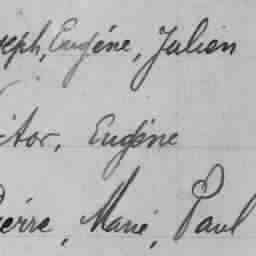 seph, Eugéne, Julien
ctor, Eugéne
Pierre, Marie, Paul